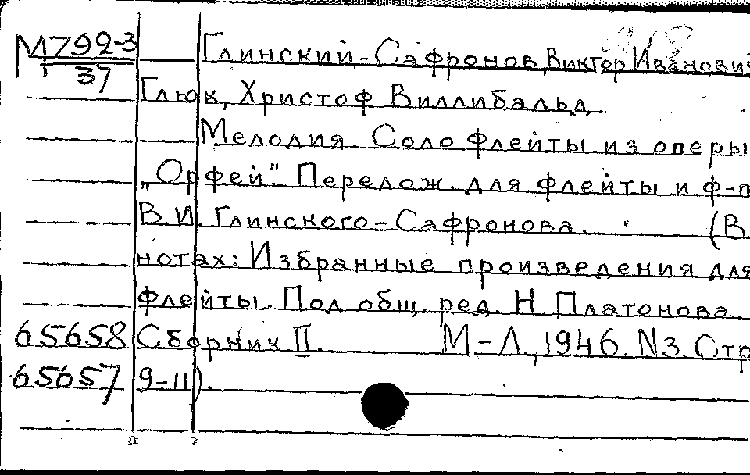 М792-3 Глинский-Сафронов, Виктор Иванович
37
Глюк, Христоф Виллибальд
Мелодия. Соло флейты из оперы
„Орфей". Перелож. для флейты и ф-п
В.И. Глинского-Сафронова. (В
нотах: Избранные произведения для
флейты. Под общ. ред. Н. Платонова.
65658 Сборник II. М-Л., 1946. N3. Стр
65657 9-11).